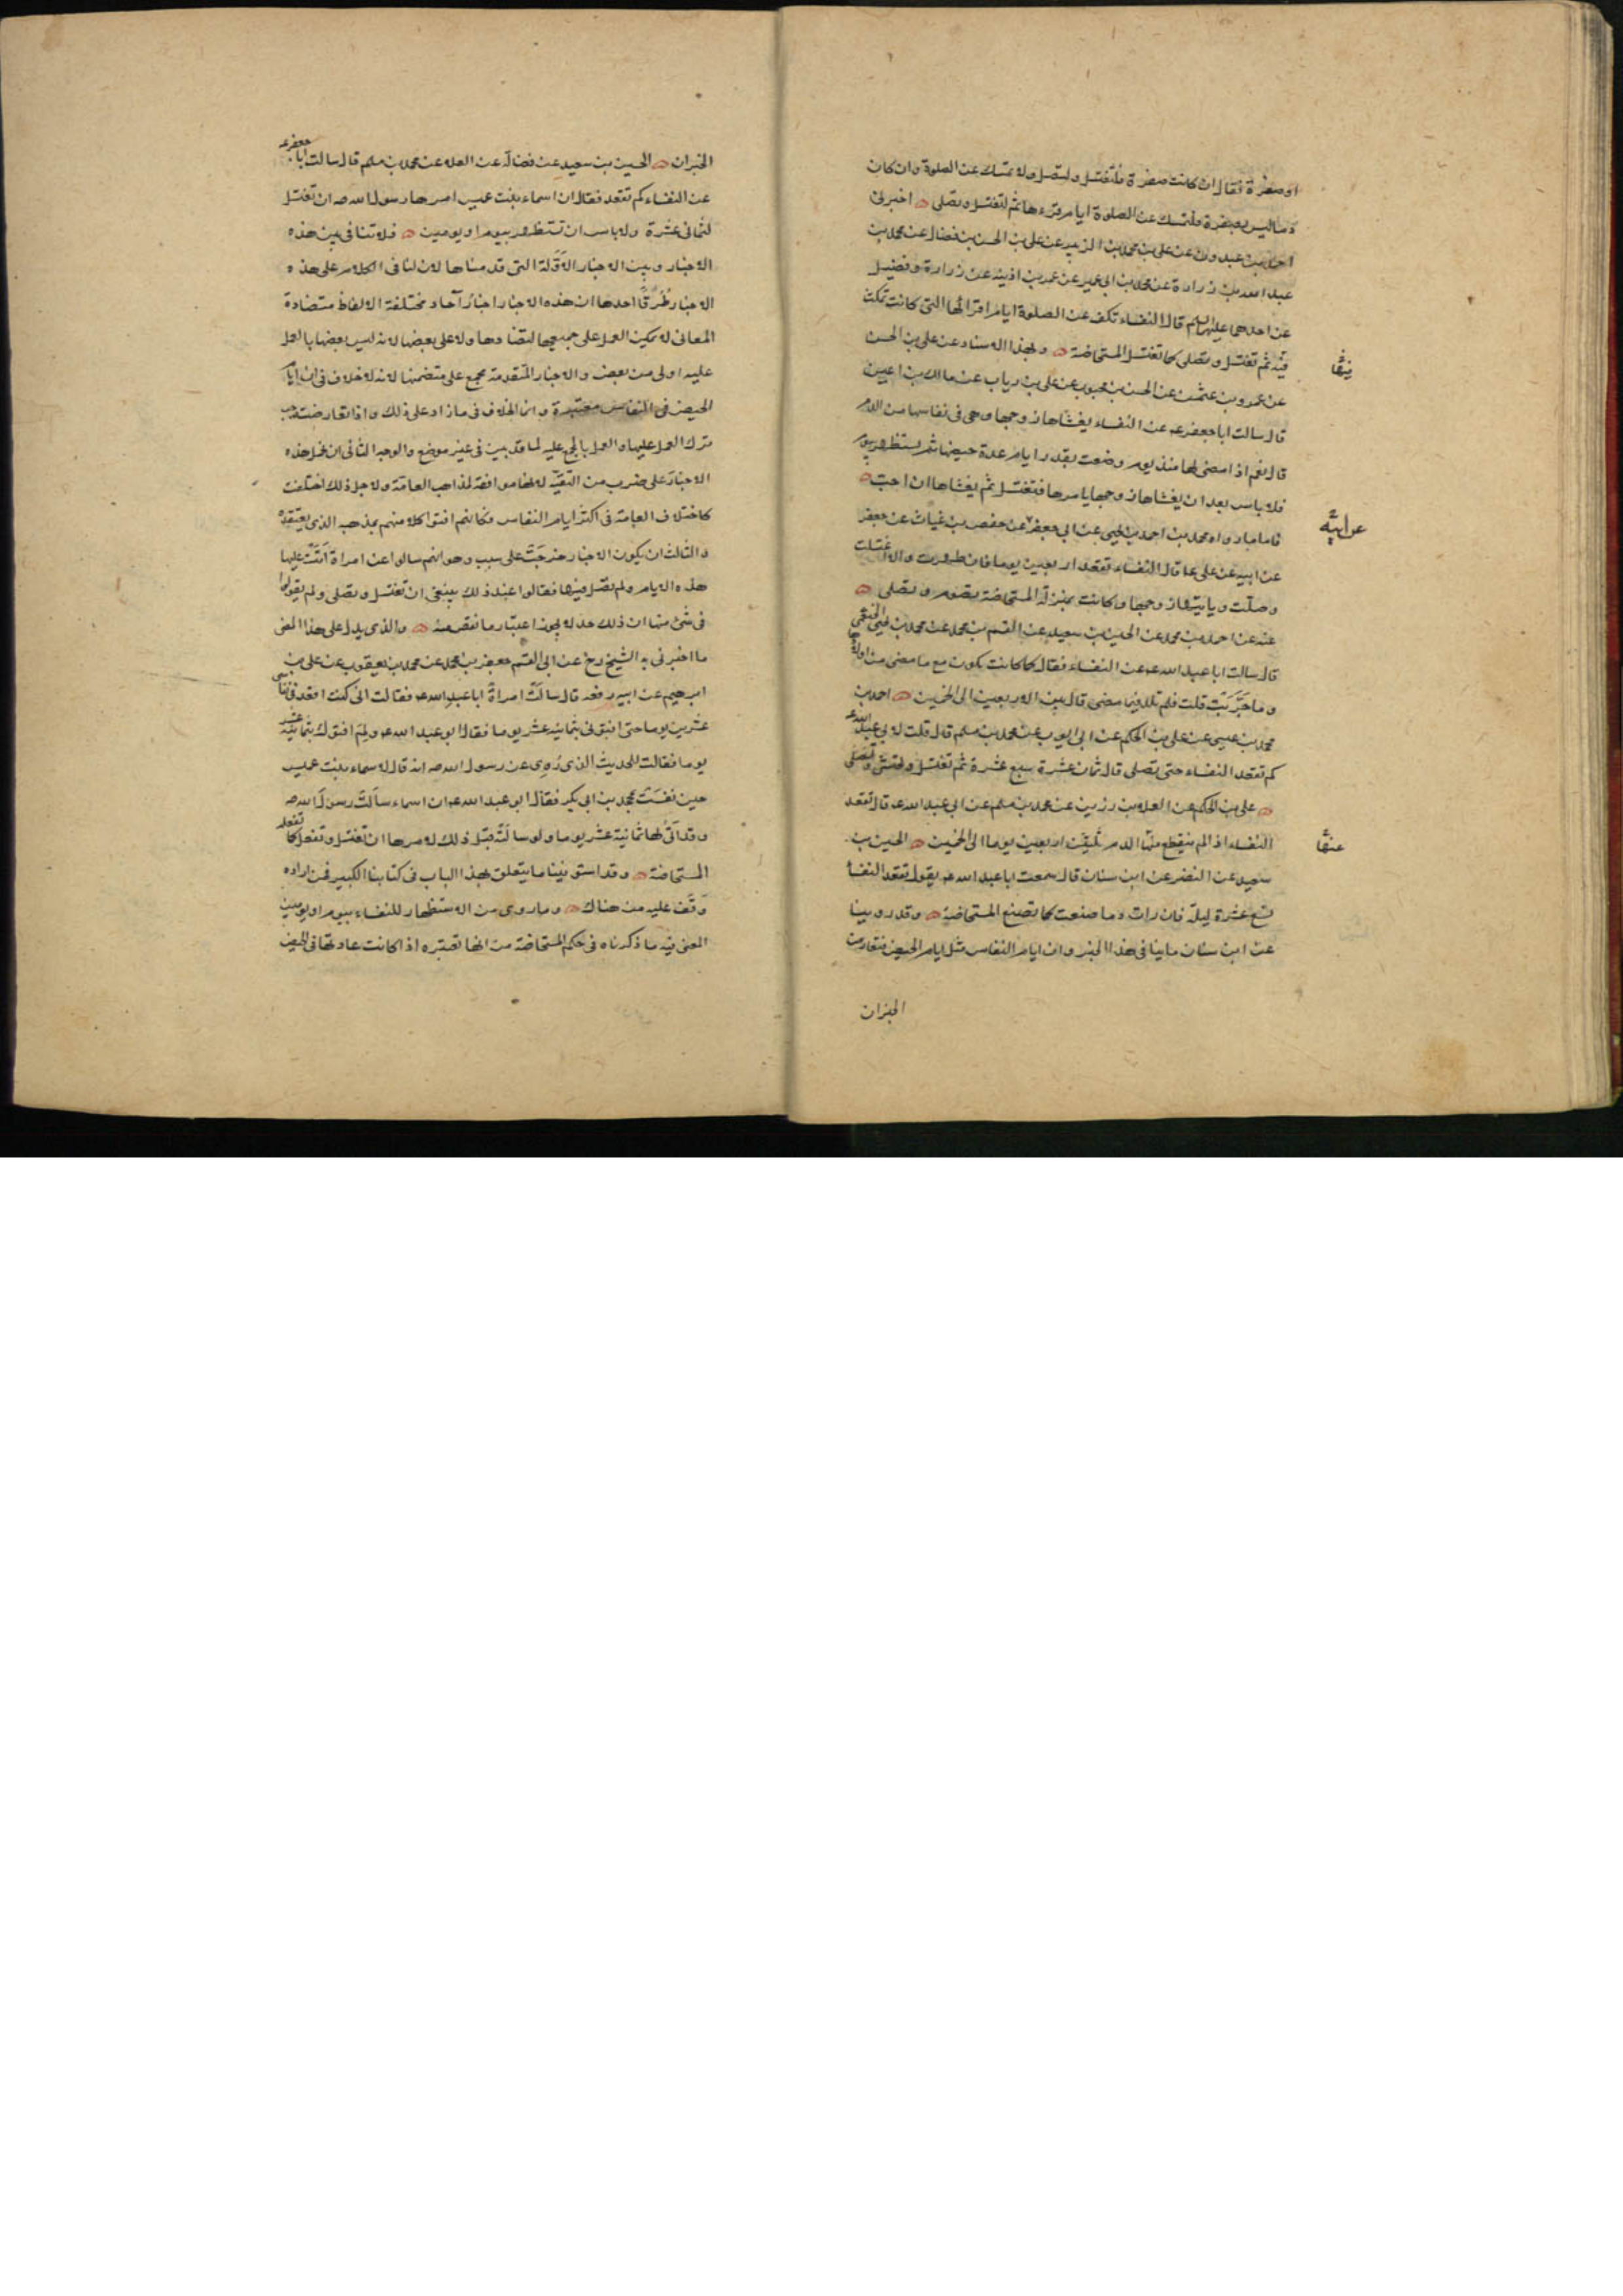 او صفرة فقال ان كانت صفرة فلتغتسل ولتصل ولا تمسك عن الصلوة وان كان
دما ليس بصفرة فلتمسك عن الصلوة ايام قرءها ثم لتغتسل وتصلى اخبرنى
احمد بن عبدون عن على بن محمد بن الزبير عن على بن الحسن بن فضال عن محمد بن
عبد الله بن زرارة عن محمد بن ابى عمير عن عمر بن اذينه عن زرارة وفضيل
عن احدهما عليهما السلم قال النفساء تكف عن الصلوة ايام اقرائها التى كانت تمكث
فيه ثم تغتسل وتصلى كما تغتسل المستحاضة وبهذا الاسناد عن على بن الحسن
عن عمرو بن عثمن عن الحسن بن محبوب عن على بن رياب عن مالك بن اعين
قال سالت ابا جعفر ع عن النفساء يغشاها زوجها وهى فى نفاسها من الدم
قال نعم اذا مضى لها منذ يوم وضعت بقدر ايام عدة حيضها ثم يستظهر بيوم
فلا باس بعد ان يغشاها زوجها يامرها فتغتسل ثم يغشاها ان احب
فاما ما رواه محمد بن احمد بن يحيى عن ابى جعفر عن حفص بن غياث عن جعفر
عن ابيه عن على ع قال النفساء تقعد اربعين يوما فان طهرت والا اغتسلت
وصلت وياتيها زوجها وكانت بمنزلة المستحاضة تصوم وتصلى
عنه عن احمد بن محمد عن الحسين بن سعيد عن القسم بن محمد عن محمد بن يحيى الخثعمى
قال سالت ابا عبد الله ع عن النفساء فقال كما كانت يكون مع ما مضى من اولادها
وما جرّبت قلت فلم تلد فيما مضى قال بين الاربعين الى الخمسين احمد بن
محمد بن عيسى عن على بن الحكم عن ابى ايوب عن محمد بن مسلم قال قلت لابى عبد الله ع
كم تقعد النفساء حتى تصلى قال ثمان عشرة سبع عشرة ثم تغتسل وتحتشى وتصلى
على بن الحكم عن العلا بن رزين عن محمد بن مسلم عن ابى عبد الله ع قال تقعد
النفساء اذا لم ينقطع عنها الدم ثلثين اربعين يوما الى الخمسين الحسين بن
سعيد عن النضر عن ابن سنان قال سمعت ابا عبد الله ع يقول تقعد النفسا
تسع عشرة ليلة فان رات دما صنعت كما تصنع المستحاضة وقد روينا
عن ابن سنان ما ينافى هذا الخبر وان ايام النفاس مثل ايام الحيض فتعارض
الخبران
الخبران الحسين بن سعيد عن فضالة عن العلا عن محمد بن مسلم قال سالت ابا جعفر ع
عن النفساء كم تقعد فقال ان اسماء بنت عميس امرها رسول الله ص ان تغتسل
لثمانى عشرة ولا باس ان تستظهر بيوم او يومين فلا تنافى بين هذه
الاخبار وبين الاخبار الاوّلة التى قدمناها لان لنا فى الكلام على هذه
الاخبار طُرُقًا احدها ان هذه الاخبار اخبار آحاد مختلفة الالفاظ متضادة
المعانى لا يمكن العمل على جميعها لتضادها ولا على بعضها لانه ليس بعضها بالعمل
عليه اولى من بعض والاخبار المتقدمة مجمع على متضمنها لانه لا خلاف فى ان ايام
الحيض فى النفاس معتبرة وانما الخلاف فى ما زاد على ذلك واذا تعارضت وجب
ترك العمل عليها والعمل بالمجمع عليه لما قد بين فى غير موضع والوجه الثانى ان نحمل هذه
الاخبار على ضرب من التقيّة لانها موافقة لمذاهب العامة ولاجل ذلك اختلفت
كاختلاف العامة فى اكثر ايام النفاس فكانهم افتوا كلا منهم بمذهبه الذى يعتقده
والثالث ان يكون الاخبار خرجَتْ على سبب وهو انهم سالوا عن امراة اَتَتْ عليها
هذه الايام ولم تصل فيها فقالوا عند ذلك ينبغى ان تغتسل وتصلى ولم يقولوا
فى شئ منها ان ذلك حد لا يجوز اعتبار ما نقص منه والذى يدل على هذا المعنى
ما اخبرنى به الشيخ رح عن ابى القسم جعفر بن محمد عن محمد بن يعقوب عن على بن
ابرهيم عن ابيه رفعه قال سالَتْ امراةٌ ابا عبد الله ع فقالت انى كنت اقعد فى نفاسى
عشرين يوما حتى افتونى بثمانية عشر يوما فقال ابو عبد الله ع ولِمَ افتوك بثمانية عشر
يوما فقالت للحديث الذى رُوِى عن رسول الله ص انه قال لاسماء بنت عميس
حين نفسَتْ بمحمد بن ابى بكر فقال ابو عبد الله ع ان اسماء سالَتْ رسولَ الله ص
وقد اَتى لها ثمانية عشر يوما ولو سالَتْه قبل ذلك لامرها ان تغتسل وتفعل كما تفعله
المستحاضة وقد استوفينا ما يتعلق بهذا الباب فى كتابنا الكبير فمن اراده
وَقَف عليه من هناك وما روى من الاستظهار للنفساء بيوم او يومين
المعنى فيه ما ذكرناه فى حكم المستحاضة من انها تعتبره اذا كانت عادتها فى الحيض